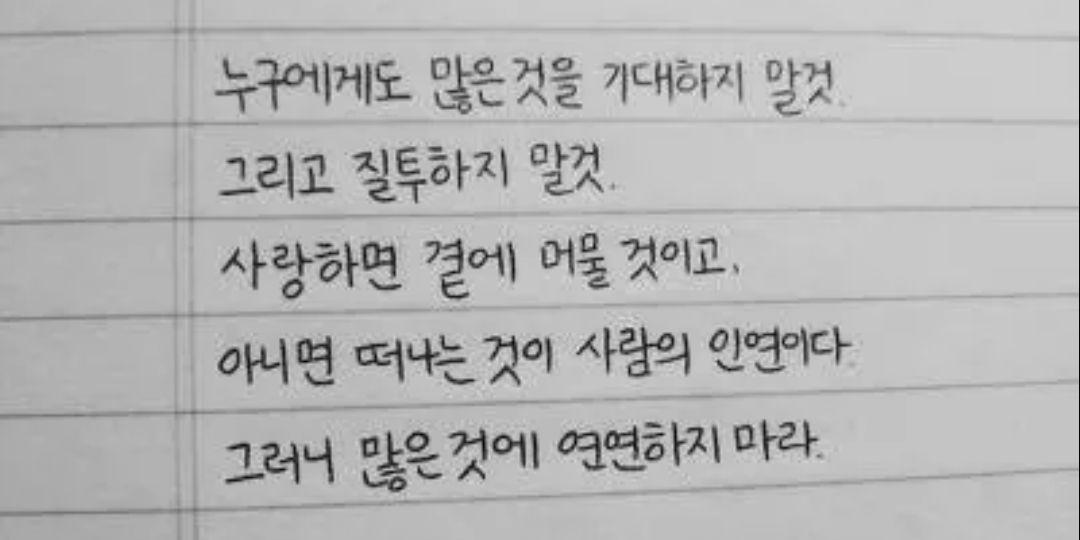 누구에게도 많은것을 기대하지 말것.
그리고 질투하지 말것.
사랑하면 곁에 머물 것이고,
아니면 떠나는 것이 사람의 인연이다.
그러니 많은것에 연연하지 마라.